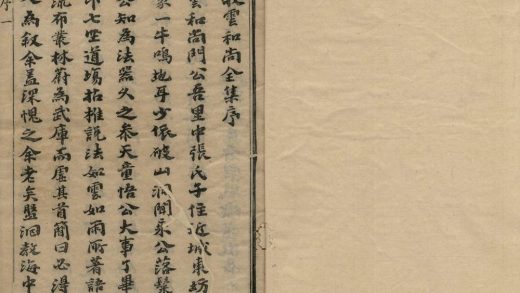 雲和尚全集序
雲和尚門公吾里中張氏子住近城東紡
家一牛鳴地耳少依破山洞聞乘公落髮
公知為法器久之參天童悟公大事了畢
印七坐道場拈椎說法如雲如雨所著語
流布叢林蔚為武庫而虛其首簡曰必得
為叙余蓋深愧之余老矣盤洄教海中
序一